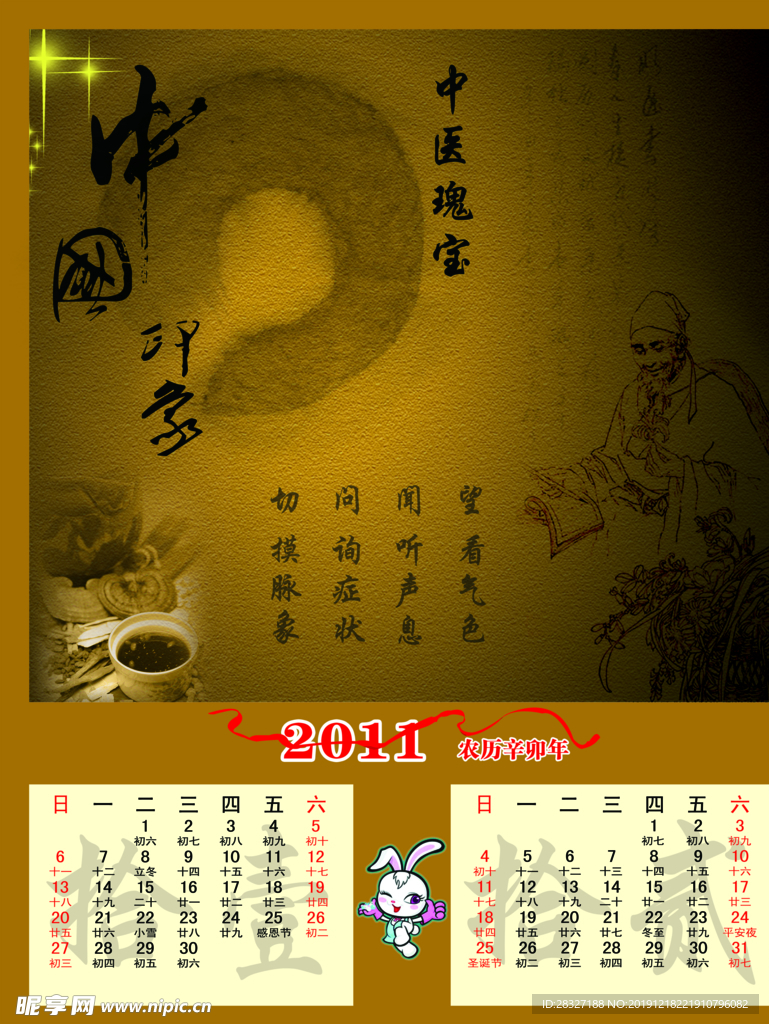 中國
印象
中医瑰宝
望 看气色
闻 听声息
问 询症状
切 摸脉象
2011 农历辛卯年
拾壹
日 一 二 三 四 五 六
1 2 3 4 5
初六 初七 初八 初九 初十
6 7 8 9 10 11 12
十一 十二 立冬 十四 十五 十六 十七
13 14 15 16 17 18 19
十八 十九 二十 廿一 廿二 廿三 廿四
20 21 22 23 24 25 26
廿五 廿六 小雪 廿八 廿九 感恩节 初二
27 28 29 30
初三 初四 初五 初六
拾贰
日 一 二 三 四 五 六
1 2 3
初七 初八 初九
4 5 6 7 8 9 10
初十 十一 十二 十三 十四 十五 十六
11 12 13 14 15 16 17
十七 十八 十九 二十 廿一 廿二 廿三
18 19 20 21 22 23 24
廿四 廿五 廿六 廿七 冬至 廿九 平安夜
25 26 27 28 29 30 31
圣诞节 初二 初三 初四 初五 初六 初七
昵享网 www.nipic.cn
ID:28327188 NO:20191218221910796082